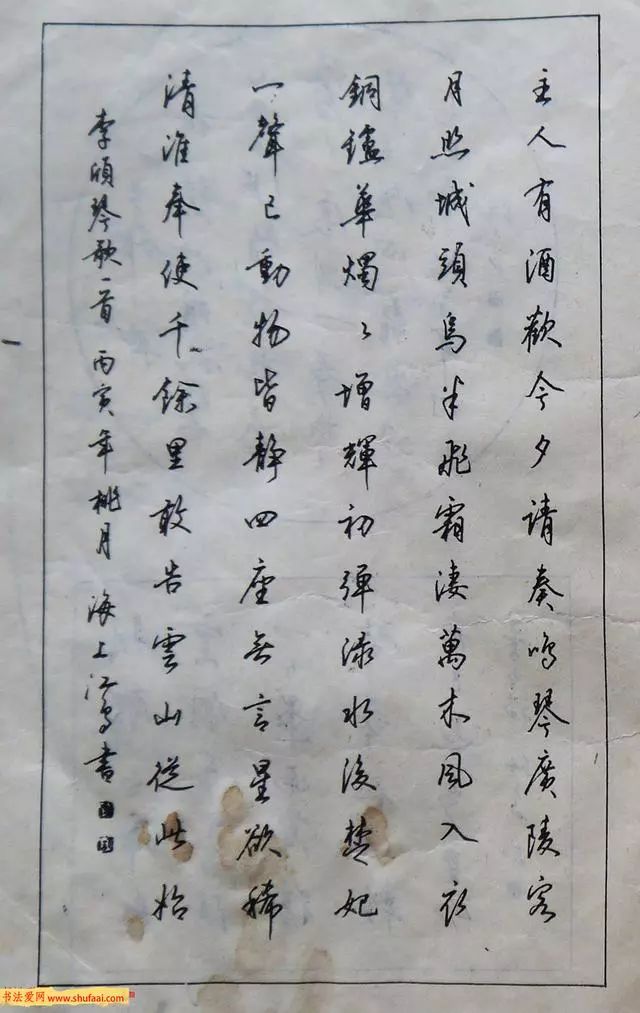 主人有酒歡今夕請奏鳴琴廣陵客
月照城頭烏半飛霜淒萬木風入衣
銅鑪華燭〻增輝初彈淥水後楚妃
一聲已動物皆靜四座無言星欲稀
清淮奉使千餘里敢告雲山從此始
李頎琴歌一首 丙寅年桃月 海上江鳥書
书法爱网 www.shufaai.com